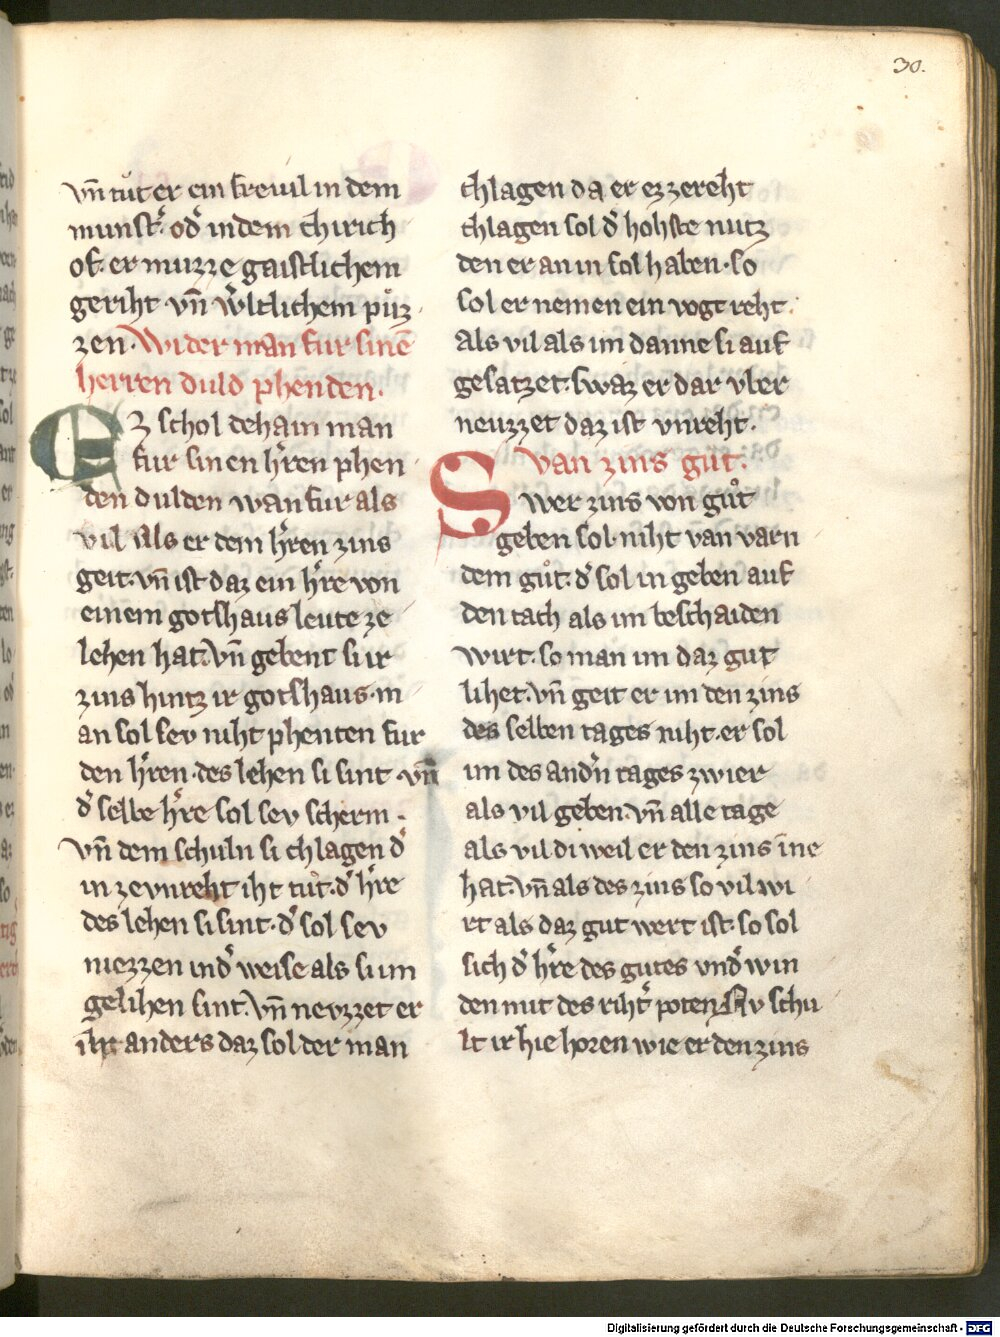 30.
vn̄ tůt er ein freivil in dem
munst͛. od͛ in dem chirich
of. er muzze gaistlichem
geriht vn̄ w͛ltlichem půz
zen. Wi der man fur sinē
herren duld phenden.
EZ schol dehain man
fur sinen h͛ren phen
den dulden wan fur als
vil. Als er dem h͛ren zins
geit. vn̄ ist daz ein h͛re von
einem gotshaus leute ze
lehen hat. Vn̄ gebent si ir
zins hintz ir gotshaus. m
an sol sev niht phenten fur
den h͛ren. des lehen si sint. vn̄
d͛ selbe h͛re sol sev scherm.
Vn̄ dem schuln si chlagen d͛
in ze vnreht iht tůt. d͛ h͛re
des lehen si sint. d͛ sol sev
niezzen in d͛ weise als si im
gelihen sint. Vn̄ nevzzet er
ihr anders daz sol der man
chlagen da er ez zereht
chlagen sol d͛ hohste nutz
den er an in sol haben. so
sol er nemen ein vogt reht.
als vil als im danne si auf
gesatzet. swaz er dar vber
neuzzet daz ist vnreht.
van zins gůt.
Swer zins von gůt
geben sol. niht van varn
dem gůt. d͛ sol in geben auf
den tach als im beschaiden
wirt. so man im daz gut
lihet. Vn̄ geit er im den zins
des selben tages niht. er sol
im des and͛n tages zwier
als vil geben. Vn̄ alle tage
als vil di weil er den zins īne
hat. Vn̄ als des zins so vil wi
rt als daz gut wert ist. so sol
sich d͛ h͛re des gutes vnd͛win
den mit des riht͛ poten. Nv schu
lt ir hie horen wie er den zins
Digitalisierung gefördert durch die Deutsche Forschungsgemeinschaft - DFG